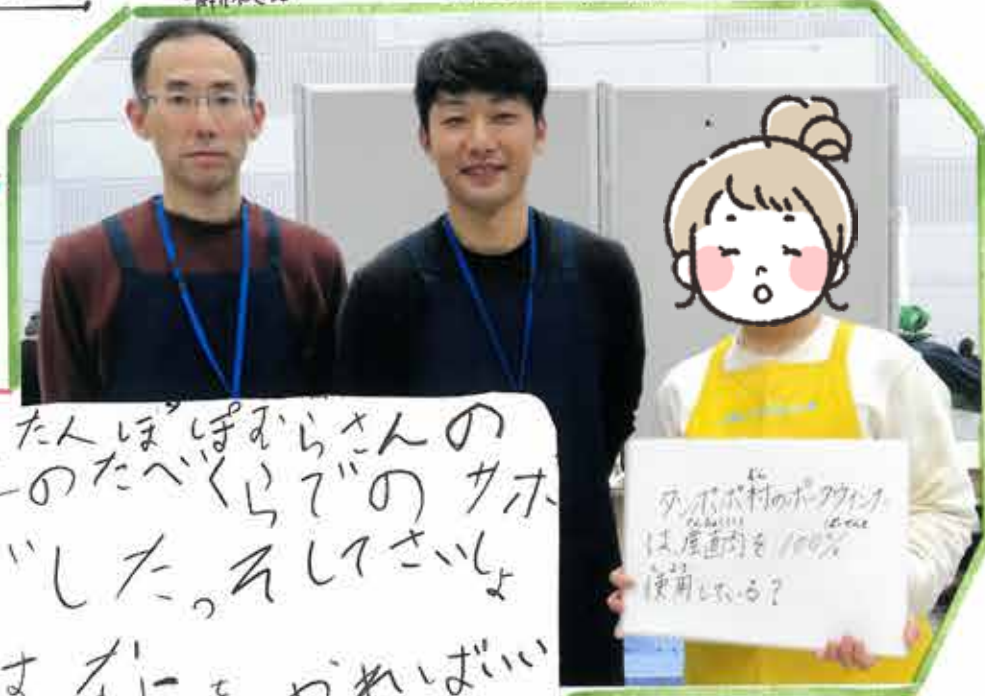 たんぽぽむらさんの
ーのたべくらでの サポ
でした。そしてさいしょ
は なにを やればいい
タンポポ村のポークウィンナー
は、産直肉を100%
使用している?